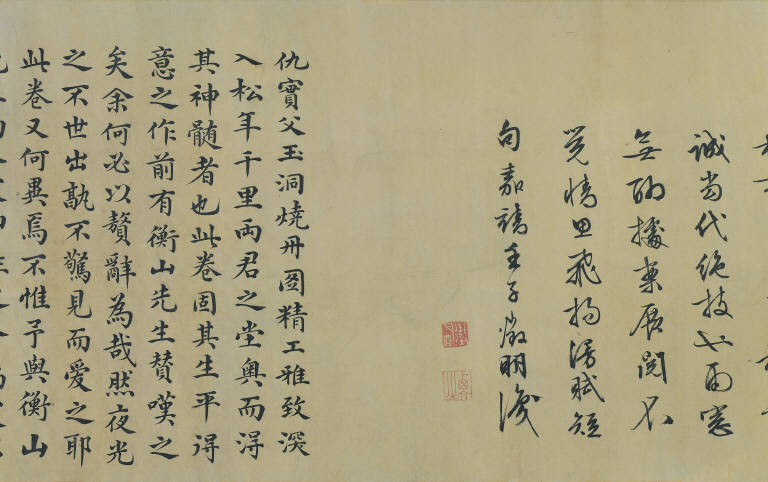 誠當代絕技也雨窓
無聊據案展閱不
覺情思飛揚漫賦短
句嘉靖壬子徵明識
仇實父玉洞燒丹圖精工雅致深
入松年千里両君之堂奧而淂
其神髓者也此卷固其生平得
意之作前有衡山先生賛嘆之
矣余何必以贅辭為哉然夜光
之不世出孰不驚見而愛之耶
此卷又何異焉不惟予與衡山